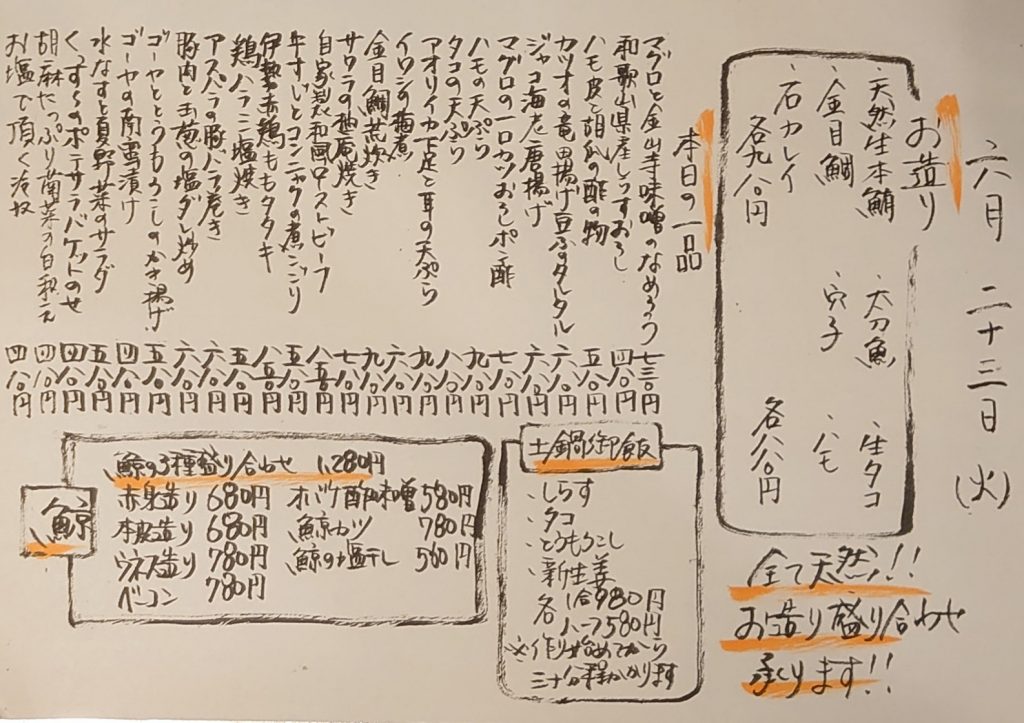 六月 二十三日 (火)
お造り
・天然生本鮪 ・太刀魚 ・生タコ
・金目鯛 ・穴子 ・ハモ
・石カレイ
各九八〇円 各八八〇円
全て天然!!
お造り盛り合わせ
承ります!!
本日の一品
マグロと金山寺味噌のなめろう 七三〇円
和歌山県産しらすおろし 四八〇円
ハモ皮と胡瓜の酢の物 五八〇円
カツオの竜田揚げ豆ふのタルタル 六八〇円
ジャコ海老唐揚げ 六八〇円
マグロの一口カツおろしポン酢 七八〇円
ハモの天ぷら 九八〇円
タコの天ぷら 八八〇円
アオリイカ下足と耳の天ぷら 九八〇円
イワシの梅煮 六八〇円
金目鯛荒炊き 九八〇円
サワラの柚庵焼き 七八〇円
自家製和風ローストビーフ 八五〇円
牛すじとコンニャクの煮こごり 五八〇円
伊勢赤鶏ももタタキ 八五〇円
鶏ハラミ塩焼き 五八〇円
アスパラの豚バラ巻き 六八〇円
豚肉と玉葱の塩ダレ炒め 六八〇円
ゴーヤととうもろこしのかき揚げ 五八〇円
ゴーヤの南蛮漬け 四八〇円
水なすと夏野菜のサラダ 五八〇円
のポテサラバケットのせ 四八〇円
胡麻たっぷり菊菜の白和え 四八〇円
お塩で頂く冷奴 四八〇円
土鍋御飯
・しらす
・タコ
・とうもろこし
・新生姜
各 1合980円
ハーフ580円
※作り始めてから
三十分程かかります
鯨
鯨の3種盛り合わせ 1,280円
赤身造り 680円 オバケ酢味噌 580円
本皮造り 680円 鯨カツ 780円
ウネス造り 780円 鯨の塩干し 560円
ベーコン 780円